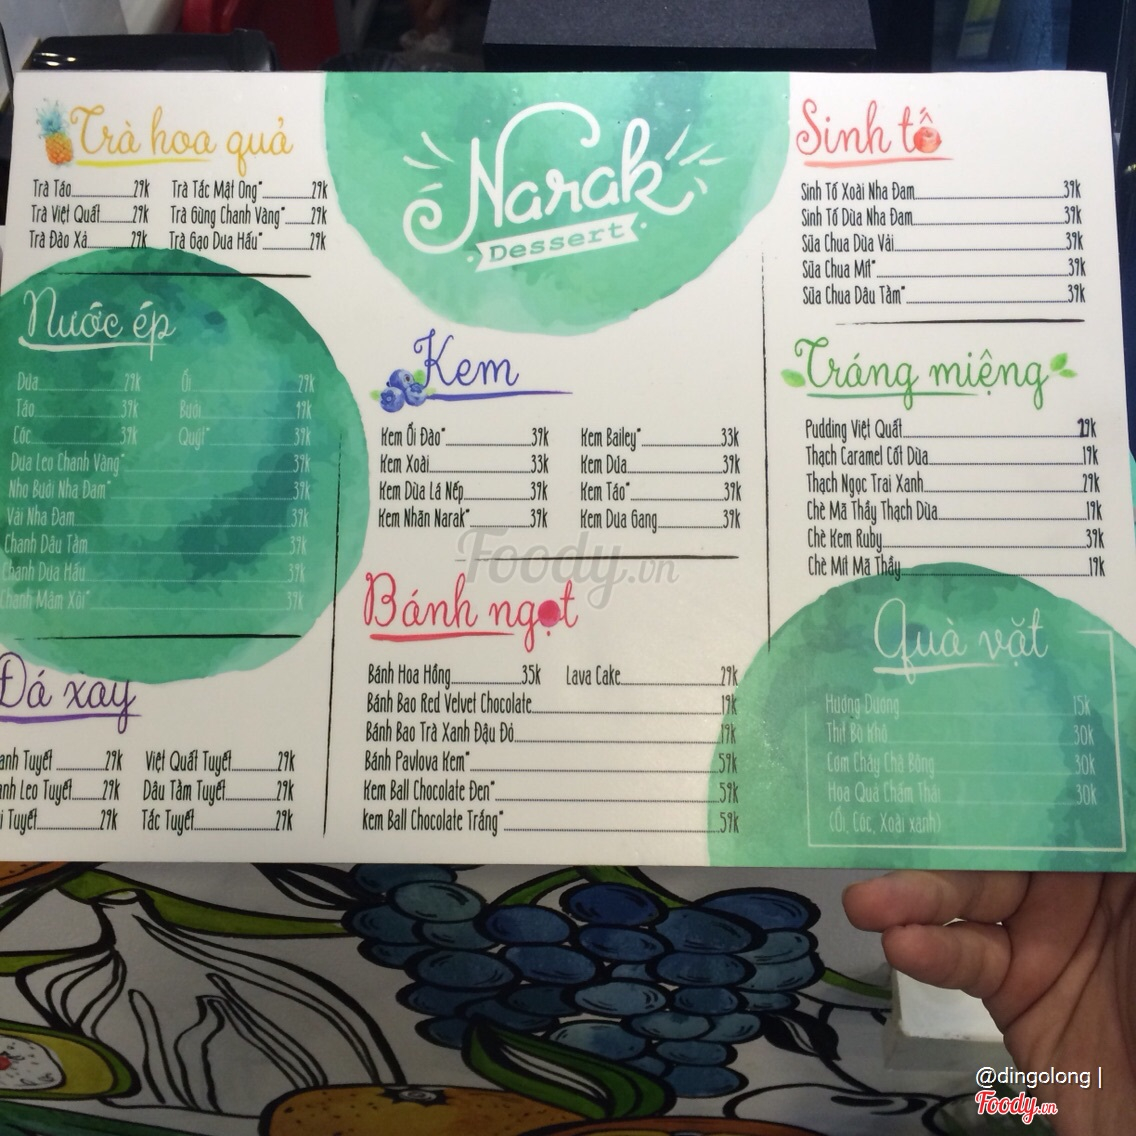 Trà hoa quả
Trà Táo 29k
Trà Việt Quất 29k
Trà Đào Xả 29k
Trà Tắc Mật Ong* 29k
Trà Gừng Chanh Vàng* 29k
Trà Gạo Dưa Hấu* 29k
Nước ép
Dứa 29k
Táo 39k
Cóc 39k
Ổi 29k
Bưởi 49k
Quýt* 39k
Dưa Leo Chanh Vàng* 39k
Nho Bưởi Nha Đam* 39k
Vải Nha Đam 39k
Chanh Dâu Tằm 39k
Chanh Dưa Hấu 39k
Chanh Mâm Xôi* 39k
Đá xay
anh Tuyết 29k
anh Leo Tuyết 29k
i Tuyết 29k
Việt Quất Tuyết 29k
Dâu Tằm Tuyết 29k
Tắc Tuyết 29k
Narak
Dessert
Kem
Kem Ổi Đào* 39k
Kem Xoài 33k
Kem Dừa Lá Nếp 39k
Kem Nhãn Narak* 39k
Kem Bailey* 33k
Kem Dứa 39k
Kem Táo* 39k
Kem Dưa Gang 39k
Bánh ngọt
Bánh Hoa Hồng 35k
Lava Cake 29k
Bánh Bao Red Velvet Chocolate 19k
Bánh Bao Trà Xanh Đậu Đỏ 19k
Bánh Pavlova Kem* 59k
Kem Ball Chocolate Đen* 59k
Kem Ball Chocolate Trắng* 59k
Sinh tố
Sinh Tố Xoài Nha Đam 39k
Sinh Tố Dừa Nha Đam 39k
Sữa Chua Dừa Vải 39k
Sữa Chua Mít* 39k
Sữa Chua Dâu Tằm* 39k
Tráng miệng
Pudding Việt Quất 29k
Thạch Caramel Cốt Dừa 19k
Thạch Ngọc Trai Xanh 29k
Chè Mã Thầy Thạch Dừa 19k
Chè Kem Ruby 39k
Chè Mít Mã Thầy 19k
Quà vặt
Hướng Dương 15k
Thịt Bò Khô 30k
Cơm Cháy Chà Bông 30k
Hoa Quả Chấm Thái 30k
(Ổi, Cóc, Xoài xanh)
Foody.vn
@dingolong |
Foody.vn